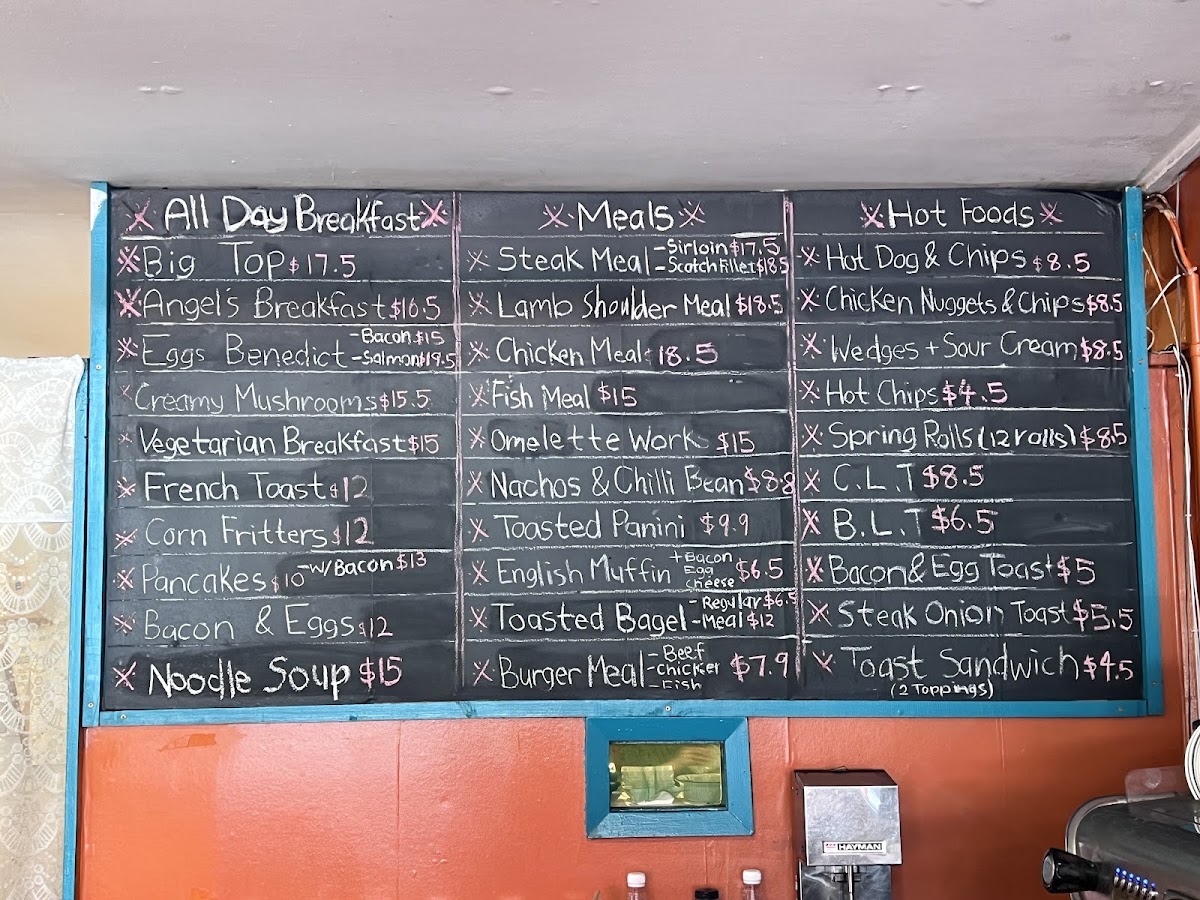 All Day Breakfast
Big Top $17.5
Angel's Breakfast $16.5
Eggs Benedict -Bacon $15
-Salmon $19.5
Creamy Mushrooms $15.5
Vegetarian Breakfast $15
French Toast $12
Corn Fritters $12
Pancakes $10 -W/Bacon $13
Bacon & Eggs $12
Noodle Soup $15
Meals
Steak Meal -Sirloin $17.5
-Scotch Fillet $18.5
Lamb Shoulder Meal $18.5
Chicken Meal 18.5
Fish Meal $15
Omelette Work $15
Nachos & Chilli Bean $8.8
Toasted Panini $9.9
English Muffin +Bacon
Egg
Cheese $6.5
Toasted Bagel -Regular $6.5
-Meal $12
Burger Meal -Beef
-Chicken
-Fish $7.9
Hot Foods
Hot Dog & Chips $8.5
Chicken Nuggets & Chips $8.5
Wedges + Sour Cream $8.5
Hot Chips $4.5
Spring Rolls (12 rolls) $8.5
C.L.T $8.5
B.L.T $6.5
Bacon & Egg Toast $5
Steak Onion Toast $5.5
Toast Sandwich $4.5
(2 Toppings)
HAYMAN